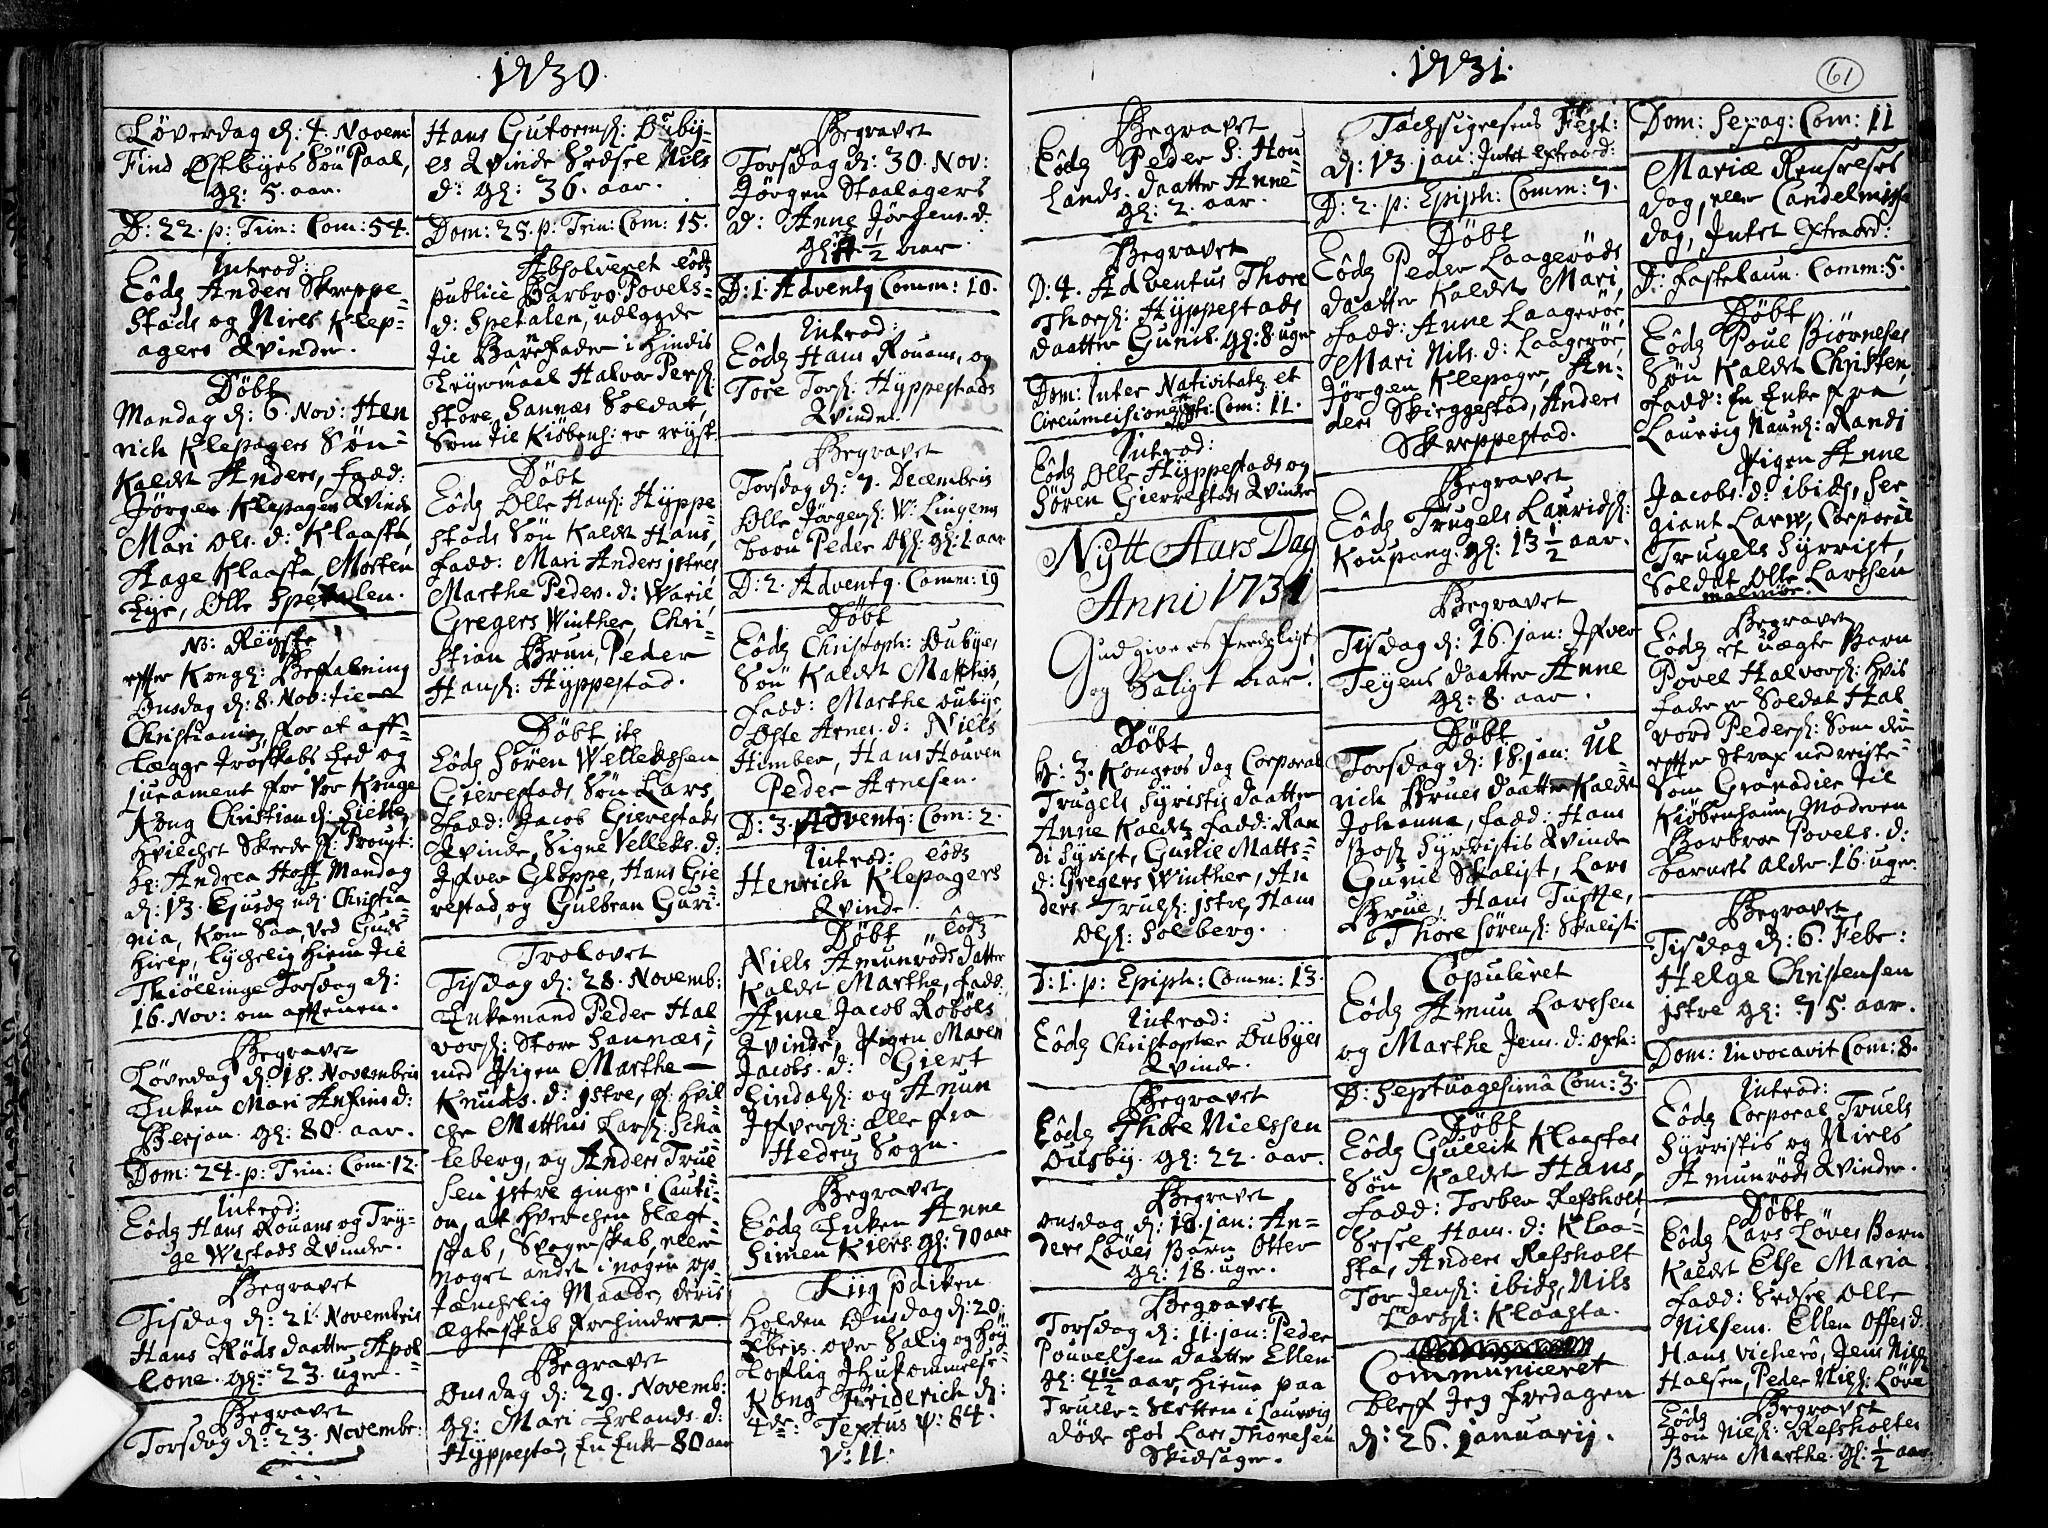 1730.
Løverdag d: 4. Novem:
Find Østbyes Søn Paal,
gl: 5. aar.
D: 22. p: Trin: Com: 54.
Introd:
Eôdz Anders Skreppe-
stads og Niels Klep-
agers Qvinder.
Døbt
Mandag d: 6. Nov: Hen
rich Klepagers Søn
Kaldet Anders, fadd:
Jørgen Klepagers Qvinde
Mari Ols. d: Klaasta,
Aage Klaasta, Morten
Eye, Olle Spetalen.
NB: Reyste
efter Kongl: Befalning
Onsdag d: 8. Nov: til
Christiania, for at aff-
lægge Troskabs Eed og
jurament for Vor Konge
Kong Christian d: Siette
hvilchet Skeede f: Proust:
Hr: Andrea Hoff Mandag
d: 13. Ejusd: udj Christia
nia, kom saa, ved Guds
hielp, lychelig hiem til
Thiøllinge Torsdag d:
16. Nov: om aftenen.
Begravet
Løverdag d: 18. Novembris
Enken Mari Anfins d:
Berjan. gl: 80. aar.
Dom: 24. p: Trin: Com: 12.
Introd:
Eôdz Hans Rouans og Try-
ge Westads Qvinder.
Begravet
Tisdag d: 21. Novembris
Hans Røds daatter Apol
lone. gl: 23. uger.
Begravet
Torsdag d: 23. Novembr:
Hans Gutormsß: Ouby-
es Qvinde Sidsel Nils
d: gl: 36. aar.
Dom: 25. p: Trin: Com: 15.
Absolveret Eôdz
publicè Barbro Povels-
d: Spetalen, udlegde
til Barnefader i hindis
Leyermaal Halvor Persß:
Store Sannæs Soldat,
som til Kiøbenh: er reyst.
Døbt
Eôdz Olle Hansß: Hyppe
stads Søn kaldet Hans,
fadd: Mari Anders jstres
Marthe Peders. d: Waril,
Gregers Winther, Chri-
stian Brun, Peder
Hansß: Hyppestad.
Døbt ite
Eôdz Søren Wellekssen
Gierestads Søn Lars
fadd: Jacob Gierestads
Qvinde, Signe Velleks. d:
Ifver Gloppe, Hans Gie
restad, og Gulbran Guri.
Trolovet
Tisdag d: 28. Novemb:
Enkemand Peder Hal
vorsß: Store Sannæs,
med Pigen Marthe
Knuds. d: jstre, f: hvil
che Matthis Larsß: Scha
leberg, og Anders Truel
sen jstre ginge i Cauti-
on, at hverchen Slægt-
skab, Svogerskab, eller
noget andet i nogen op
tænchelig Maade, deris
ægteskab forhindrer.
Begravet
Onsdag d: 29. Novemb:
gl: Mari Erlands. d:
Hyppestad, En Enke 80 aar
Begravet
Torsdag d: 30. Nov:
Jørgen Staalagers
d: Anne Jørgens. d.
gl: 1/2 aar
D: 1. Adventq Comm: 10.
Introd:
Eôdz Hans Rouans, og
Tore Torsß: Hyppestads
Qvinder.
Begravet
Torsdag d: 7. Decembris
Olle Jørgensß: W: Lingems
barn Peder Olsß: gl: 1 aar
D: 2. Adventq. Comm: 19
Døbt
Eôdz Christoph: Oubyes
Søn kaldet Matthis,
fadd: Marthe Oubye,
Oste Arnes. d: Niels
Himber, Hans Houven
Peder Arnesen.
D: 3. Adventq: Com: 2.
Introd: Eôdz
Henrich Klepagers
Qvinde
Døbt Eôdz
Niels Amunrøds datter
kaldet Marthe, fadd:
Anne Jacob Robøls
Qvinde, Pigen Maren
Jacobs. d: Giert
Lindalsß: og Amun
Ifversß: alle fra
Hedrum Sogn.
Begravet
Eôdz Enken Anne
Simen Kiærs. gl: 70 aar
Liig Prdiken
holden Onsdag d: 20:
Xbris. over Salig og høy
loflig Jhukommelse
Kong Friderich d:
4de: Textus ψ: 84.
v: 11.
1731.
61
Begravet
Eôdz Peder S: Hou-
lands. daatter Anne
gl: 2. aar.
Begravet
D: 4. Adventus Thore
Thorsß: Hyppestads
daatter Gunil. gl: 8 uger
Dom: Inter Nativitatz et
Circumcisionis Com: 11.
Introd:
Eôdz Olle Hyppestads og
Søren Gierrestads Qvinder
Nytt Aars Dag
Anni 1731
Gud give et fredeligt
og Saligt aar!
Døbt
H: 3. Kongers dag Corporal
Trugels Syristis daatter
Anne kaldet fadd: Ran
di Syrist, Gunile Matts-
d: Gregers Winther, An
ders Trulsß: jstre, Hans
Olsß: Solberg.
D: 1. p: Epiph: Comm: 13.
Introd:
Eôdz Christopher Oubyes
Qvinde.
Begravet
Eôdz Thore Nielssen
Ousby. gl: 22. aar.
Begravet
Onsdag d: 10. jan: An-
ders Løves Barn Otter
gl: 18. uger.
Begravet
Torsdag d: 11. jan: Peder
Pouvelsen daatter Ellen
gl: 4 1/2 aar, hiemme paa
Trulls-Sletten i Laurvig
døde hos Lars Thoresen
Skidsager.
Tachsigelsens Fest:
d: 13. jan: Intet extraord:
D: 2. p: Epiph: Comm: 7.
Døbt
Eôdz Peder Laagerøds
daatter kaldet Mari,
fadd: Anne Laagerøe,
Mari Nils. d: Laagerøe,
Jørgen Klepager, An-
ders Skieggestad, Anders
Skreppestad.
Begravet
Eôdz Trugels Lauridsß:
Koupang. gl: 13 1/2 aar.
Begravet
Tisdag d: 16. jan: Ifver
Teyens daatter Anne
gl: 8. aar.
Døbt
Torsdag d: 18. jan: Ul
rich Brues daatter kaldet
Johanna, fadd: Hans
Bosß: Syrristis Qvinde
Gunil Skalist, Lars
Brue, Hans Tufte,
Thore Sørensß: Skalist
Copuleret
Eôdz Amun Larssen
og Marthe Jens. d: oph:
D: Septuagesimâ Com: 3.
Døbt
Eôdz Gullik Klaastas
Søn kaldet Hans,
fadd: Torber Refsholt
Sesel Hans. d: Klaa-
sta, Anders Refsholt
Tor Jensß: ibidz, Nils
Larsß: Klaasta.
Communiceret
blef Jeg fredagen
d: 26. januarij.
Dom: Sexag: Com: 11
Mariæ Renselses
dag, eller Candelmisse
dag, Intet extraord:
D: Fastelaun. Comm: 5.
Døbt
Eôdz Poul Biørneses
Søn kaldet Christen,
fadd: En Enke fra
Laurvig Naunl: Randi
Pigen Anne
Jacobs. d: ibidz, Ser
giant Larw, Corporal
Trugels Syrrist,
Soldat Olle Larssen
Malmøe.
Begravet
Eôdz et uægte Barn
Povel Halvorsß: hvis
Fader er Soldat Hal
vord Pedersß: som der
efter strax nedreiste
som Granadier til
Kiøbenhaun, Moderen
Barbroe Povels. d:
barnets alder. 16. uger
Begravet
Tisdag d: 6. Febr:
Helge Christensen
jstre gl: 75. aar.
Dom: Invocavit Com: 8.
Introd:
Eôdz Corporal Truels
Syrristis og Niels
Amunrøds Qvinder.
Døbt
Eôdz Lars Løves Barn
kaldet Else Maria
fadd: Sidsel Olle
Nilsens. Ellen Offes d.
Hans Vicherö, Jens Nilsß
Halsen, Peder Nilsß: Løve
Begravet
Eôdz Jon Nielsß: Refsholtes
Barn Marthe. gl: 1/2 aar.